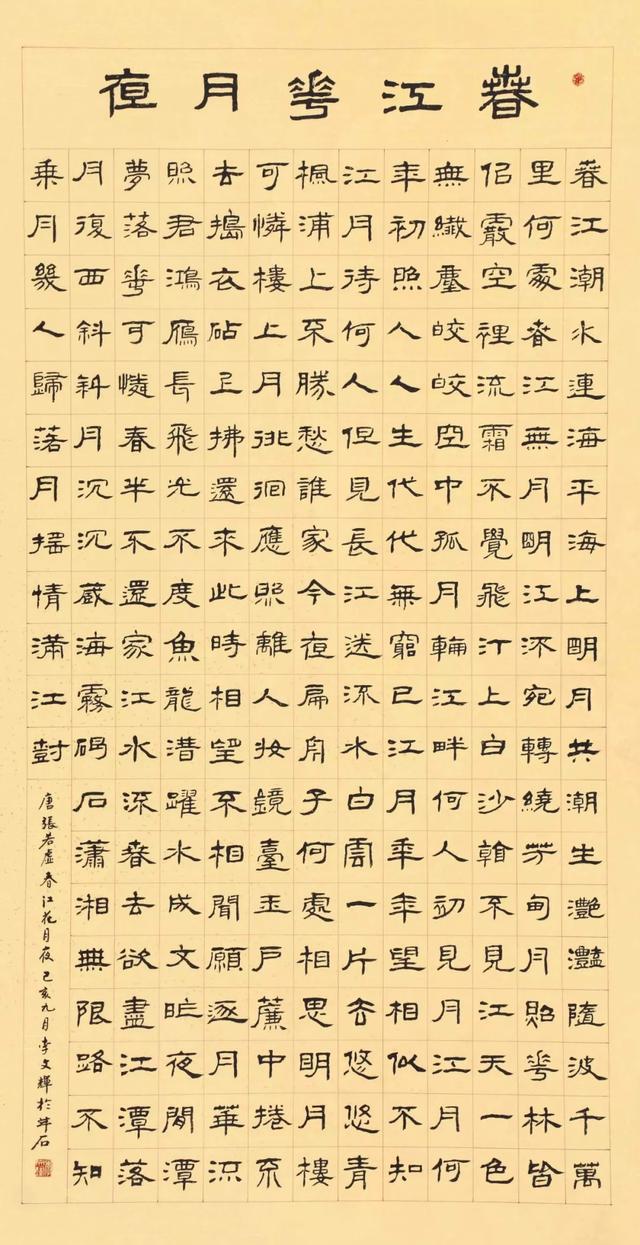 春江花月夜
春江潮水連海平海上明月共潮生灩灩隨波千萬
里何處春江無月明江流宛轉繞芳甸月照花林皆
似霰空裡流霜不覺飛汀上白沙看不見江天一色
無纖塵皎皎空中孤月輪江畔何人初見月江月何
年初照人人生代代無窮已江月年年望相似不知
江月待何人但見長江送流水白雲一片去悠悠青
楓浦上不勝愁誰家今夜扁舟子何處相思明月樓
可憐樓上月徘徊應照離人妝鏡臺玉戶簾中捲不
去搗衣砧上拂還來此時相望不相聞願逐月華流
照君鴻雁長飛光不度魚龍潛躍水成文昨夜閒潭
夢落花可憐春半不還家江水流春去欲盡江潭落
月復西斜斜月沉沉藏海霧碣石瀟湘無限路不知
乘月幾人歸落月搖情滿江樹
唐張若虛春江花月夜己亥九月李文輝於